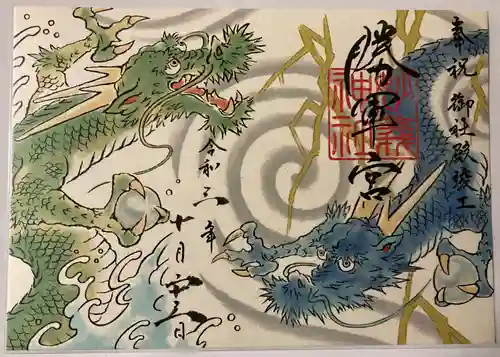 奉祝 御社殿竣工
勝軍宮
神社
令和三年
十月
日